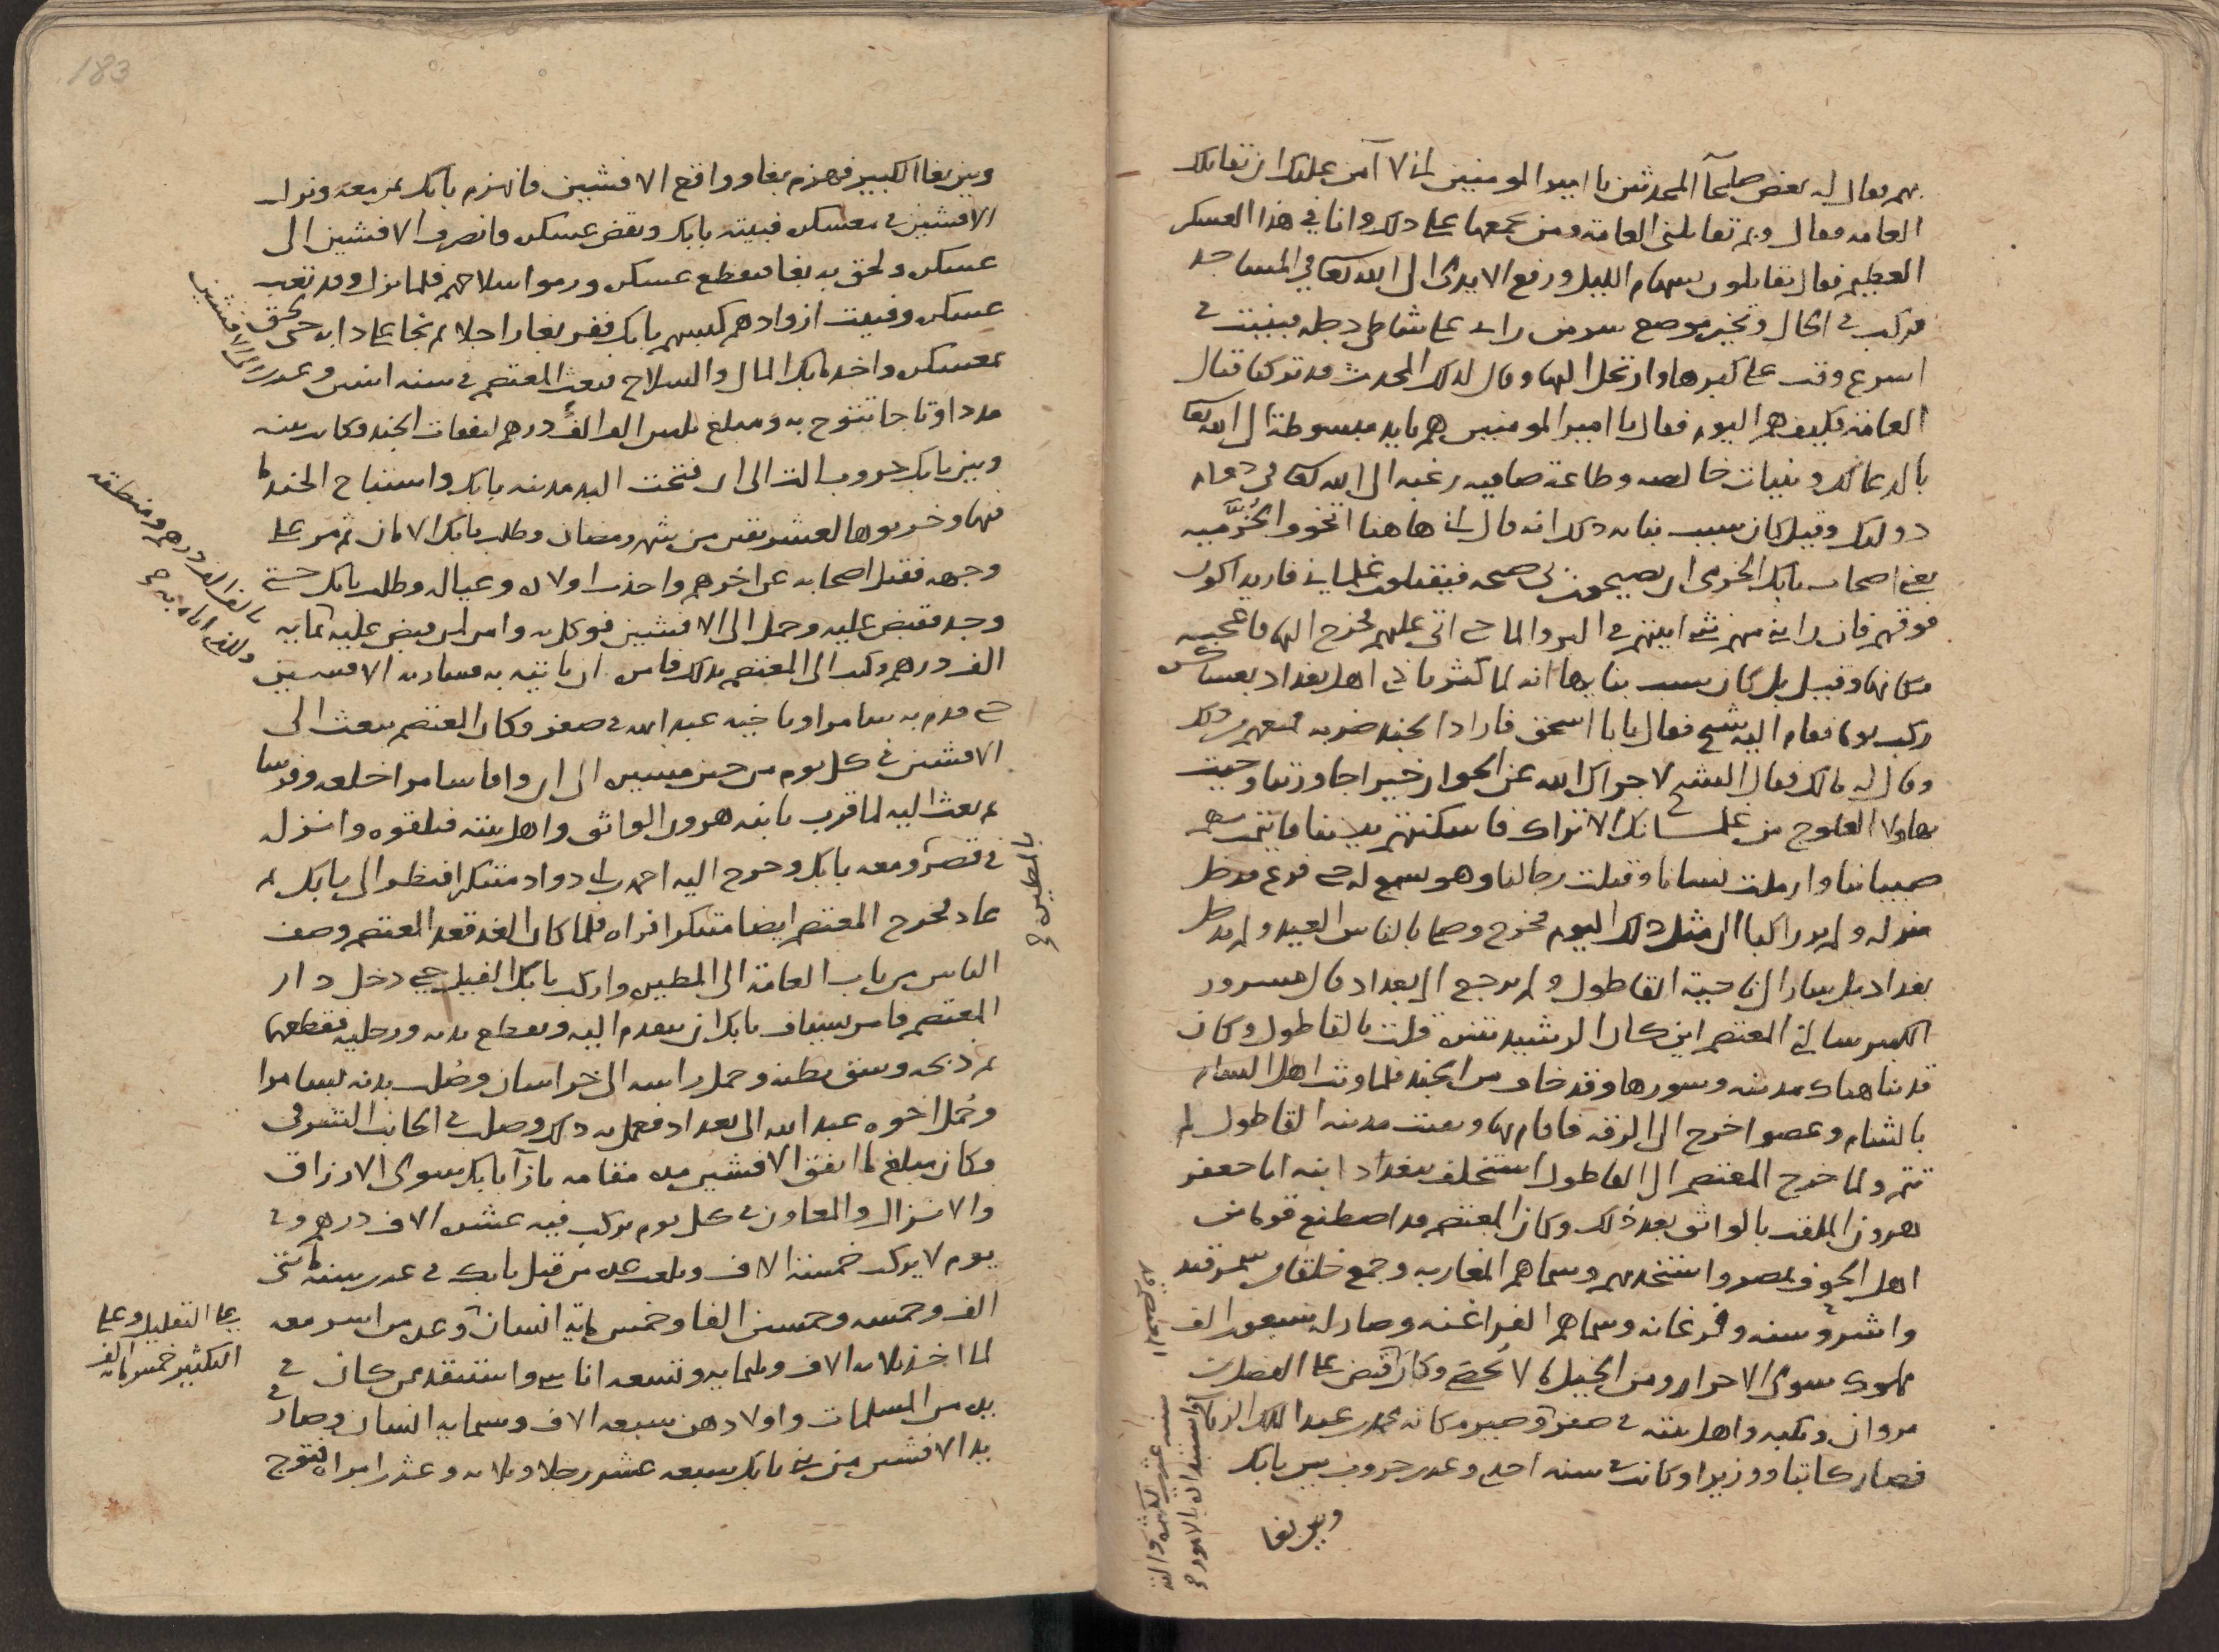 بهم فقال له بعض صلحآ المحدثين يا امير المومنين اني لا آمن عليك ان تقاتلك
العامه فقال وبم تقاتلني العامة ومن يجمعها على ذلك وانا في هذا العسكر
العظيم فقال يقاتلون بسهام الليل ورفع الايدي الى الله تعا في المساجد
فركب في الحال وتخير موضع سر من راى على شاطي دجله فبنيت في
اسرع وقت على كبرها وارتحل اليها وقال لذلك المحدث قد تركنا قتال
العامة فكيف هم اليوم فقال يا امير المومنين هم بايد مبسوطة الى الله تعا
بالدعا لك ونيات خالصه وطاعة صافيه رغبه الى الله تعا في دوام
دولتك وقيل كان سبب بنايه ذلك انه قال اني هاهنا اتخوف الخُرَّميه
يعني اصحاب بابك الخرمي ان يصيحون بي صيحه فيقتلون غلماني فاريد اكون
فوقهم فان رابني منهم شي اتيتهم في البر والما حتى اتي عليهم فخرج اليها فاعجبه
مكانها وقيل بل كان سبب بنايها انه لما كثر تاذي اهل بغداد بعساكره
ركب يوما فقام اليه شيخ فقال يا ابا اسحق فاراد الجند ضربه فمنعهم من ذلك
وقال له مالك فقال الشيخ لا جزاك الله عن الجوار خيرا جاورتنا وجيت
بهاولا العلوج من غلمانك الاتراك فاسكنتهم بيننا فايتمت بهم
صبياننا وارملت نساانا وقتلت رجالنا وهو يسمع له حتى فرغ فدخل
منزله ولم ير راكبا الى مثل ذلك اليوم فخرج وصلى بالناس العيد ولم يدخل
بغداد بل سار الى ناحية القاطول ولم يرجع الى بغداد قال مسرور
الكبير سالني المعتصم اين كان الرشيد يتنزه قلت بالقاطول وكان
قد بنا هناك مدينه وسورها وقد خاف من الجند فلما وثب اهل الشام
بالشام وعصوا خرج الى الرقه فاقام بها وبقيت مدينه القاطول لم
تتم ولما خرج المعتصم الى القاطول استخلف ببغداد ابنه ابا جعفر
هرون الملقب بالواثق بعد ذلك وكان المعتصم قد اصطنع قوما من
اهل الحوف بمصر واستخدمهم وسماهم المغاربه وجمع خلقا من سمرقند
واشروسنه وفرغانه وسماهم الفراغنه وصار له سبعون الف
مملوك سوى الاحرار ومن الخيل ما لا يُحصى وكان قبض على الفضل بن
مروان ونكبه واهل بيته في صفر وصير مكانه محمد بن عبد الملك الزيات
فصار كاتبا ووزيرا وكانت في سنه احدى وعشرين حروب بين بابك
وبين بغا
المعتصم قد
واستبد انه بالامور صح
سنه عشرين
183
وبين بغا الكبير فهزم بغا وواقع الافشين فانهزم بابك بمن معه ونزل
الافشين في معسكره فبيته بابك ونقض عسكره وانصرف الافشين الى
عسكره ولحق به بغا فقطع عسكره ورموا سلاحهم فلما نزل وقد تعب
عسكره وفنيت ازوادهم كبسهم بابك ففر بغا راجلا ثم نجا على دابه حتى لحق
بمعسكره واخذ بابك المال والسلاح فبعث المعتصم في سنه اثنين وعشرين
الى الافشين
مددا وتاجا تتوج به ومبلغ ثلثين الف الف درهم لنفقات الجند وكان بينه
وبين بابك حروب الت الى ان فتحت البذ مدينه بابك واستباح الجند ما
فيها وخربوها لعشر بقين من شهر رمضان وطلب بابك الامان ثم مر على
وجهه فقتل اصحابه عن اخرهم واحذت اولاده وعياله وطلب بابك حتى
وجد فقبض عليه وحمل الى الافشين فوكل به وامر لمن قبض عليه بمايه
الف درهم وكتب الى المعتصم بذلك فامره ان ياتيه به فسار به الافشين
بالف الف درهم ومنطقه
حتى قدم به سامرا وباخيه عبد الله في صفر وكان المعتصم يبعث الى
الافشين في كل يوم من حين مسيره الى ان وافا سامرا خلعه وفرسا
ثم بعث اليه لما قرب بابنه هرون الواثق واهل بيته فتلقوه وانزله
بالمطيره صح
في قصره ومعه بابك وخرج اليه احمد بن ابي دواد متنكرا فنظر الى بابك ثم
عاد فخرج المعتصم ايضا متنكرا فراه فلما كان الغد قعد المعتصم وصف
الناس من باب العامة الى المطيره واركب بابك الفيل حتى دخل دار
المعتصم فامر سياف بابك ان يتقدم اليه ويقطع يديه ورجليه فقطعها
ثم ذبحه وشق بطنه وحمل راسه الى خراسان وصُلب بدنه بسامرا
وحُمل اخوه عبد الله الى بغداد ففعل به ذلك وصلب في الجانب الشرقي
وكان مبلغ ما انفق الافشين مده مقامه بازآ بابك سوى الارزاق
والانزال والمعاون في كل يوم يركب فيه عشره الاف درهم وفي
يوم لا يركب خمسة الاف وبلغت عده من قتل بابك في عشرين سنه مايتي
الف وخمسه وخمسين الفا وخمس مايه انسان وعده من اسر معه
على التقليل وعلى
التكثير خمس مايه الف
لما اخذ ثلاثه الاف وثلثمايه وتسعه اناسي واستنقد من كان في
يده من المسلمات واولادهن سبعه الاف وستمايه انسان وصار في
يد الافشين من بني بابك سبعه عشر رجلا وثلاثه وعشرين امراه فتوج